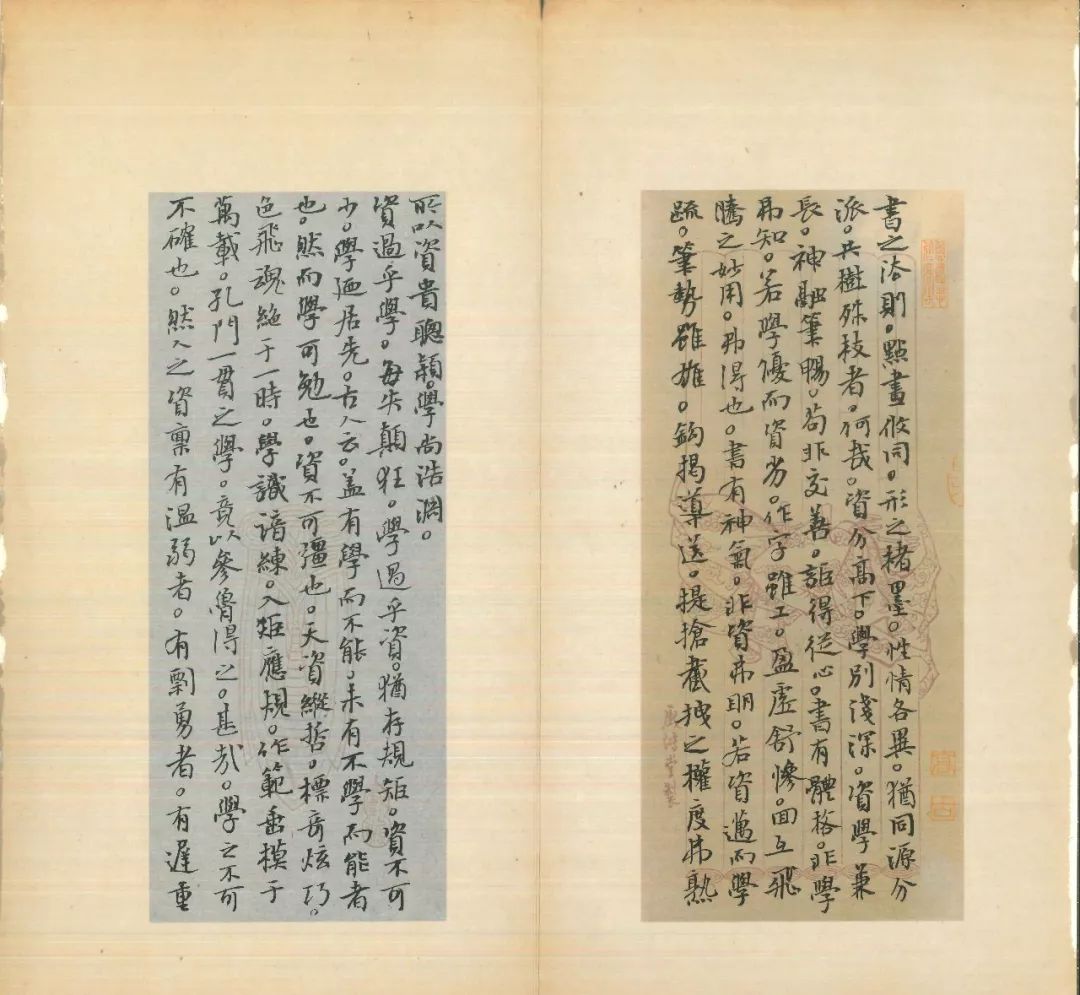 書之法則。點畫攸同。形之楮墨。性情各異。猶同源分
派。共樹殊枝者。何哉。資分高下。學別淺深。資學兼
長。神融筆暢。苟非交善。詎得從心。書有體格。非學
弗知。若學優而資劣。作字雖工。盈虛舒慘。囬互飛
騰之妙用。弗得也。書有神氣。非資弗明。若資邁而學
疏。筆勢雖雄。鉤揭導送。提搶截拽之權度弗熟
所以資貴聰穎。學尚浩淵。
資過乎學。每失顛狂。學過乎資。猶存規矩。資不可
少。學廼居先。古人云。盖有學而不能。未有不學而能者
也。然而學可勉也。資不可彊也。天資縱哲。標奇炫巧。
色飛魂絶于一時。學識諳練。入矩應規。作範垂模于
萬載。孔門一貫之學。竟以參魯得之。甚哉。學之不可
不確也。然人之資稟有溫弱者。有剽勇者。有遲重